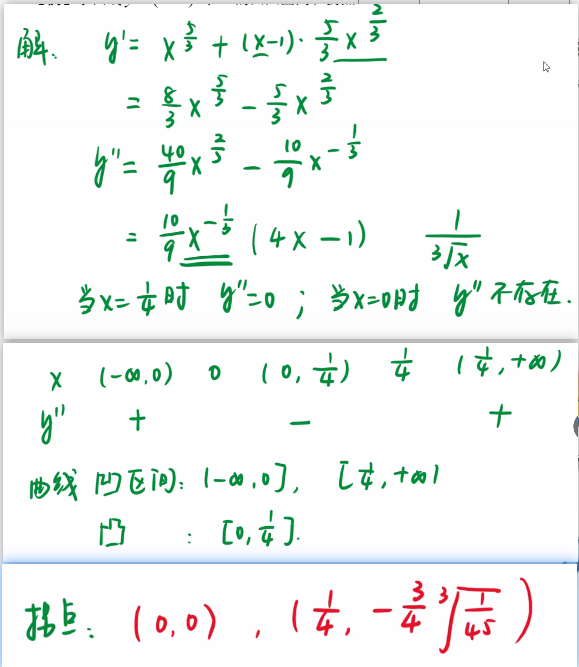 解: y' = x^{5/3} + (x-1)·\frac{5}{3}x^{2/3}
= \frac{8}{3}x^{5/3} - \frac{5}{3}x^{2/3}
y'' = \frac{40}{9}x^{2/3} - \frac{10}{9}x^{-1/3}
= \frac{10}{9}x^{-1/3}(4x-1) \frac{1}{\sqrt[3]{x}}
当x=\frac{1}{4}时 y''=0 ; 当x=0时 y''不存在.
x (-∞,0) 0 (0,\frac{1}{4}) \frac{1}{4} (\frac{1}{4},+∞)
y'' + - +
曲线凹区间: (-∞,0], [\frac{1}{4},+∞)
凹 : [0,\frac{1}{4}].
拐点: (0,0), (\frac{1}{4}, -\frac{3}{4}\sqrt[3]{\frac{1}{4^5}})